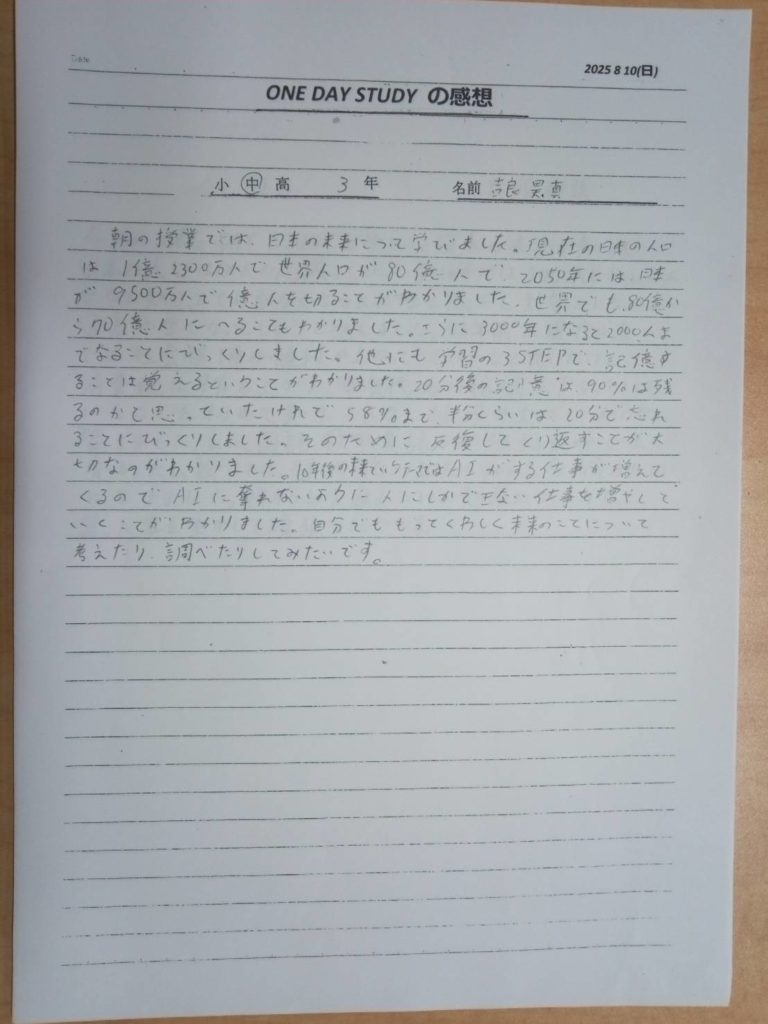 Date
2025 8 10(日)
ONE DAY STUDY の感想
小 中 高 3 年 名前
朝の授業では、日本の未来について学びました。現在の日本の人口
は 1億 2300万人で 世界人口が 80億 人で、2050年には、日本
が 9500万人で 億 人を切ることがわかりました。世界でも、80億か
ら70億人 に へることもわかりました。さらに 3000年になると2000人ま
でなることにびっくりしました。他にも 学習の3STEPで、記憶す
ることは覚えるということがわかりました。20分後の記憶は、90%は残
るのかと思っていたけれど 58%まで、半分くらいは、20分で忘れ
ることにびっくりしました。そのために、反復してくり返すことが大
切なのがわかりました。10年後の未来というテーマではAIがする仕事が増えて
くるので AIに奪われないように 人にしかできない仕事を増やして
いくことがわかりました。自分でももってくわしく未来のことについて
考えたり、調べたりしてみたいです。